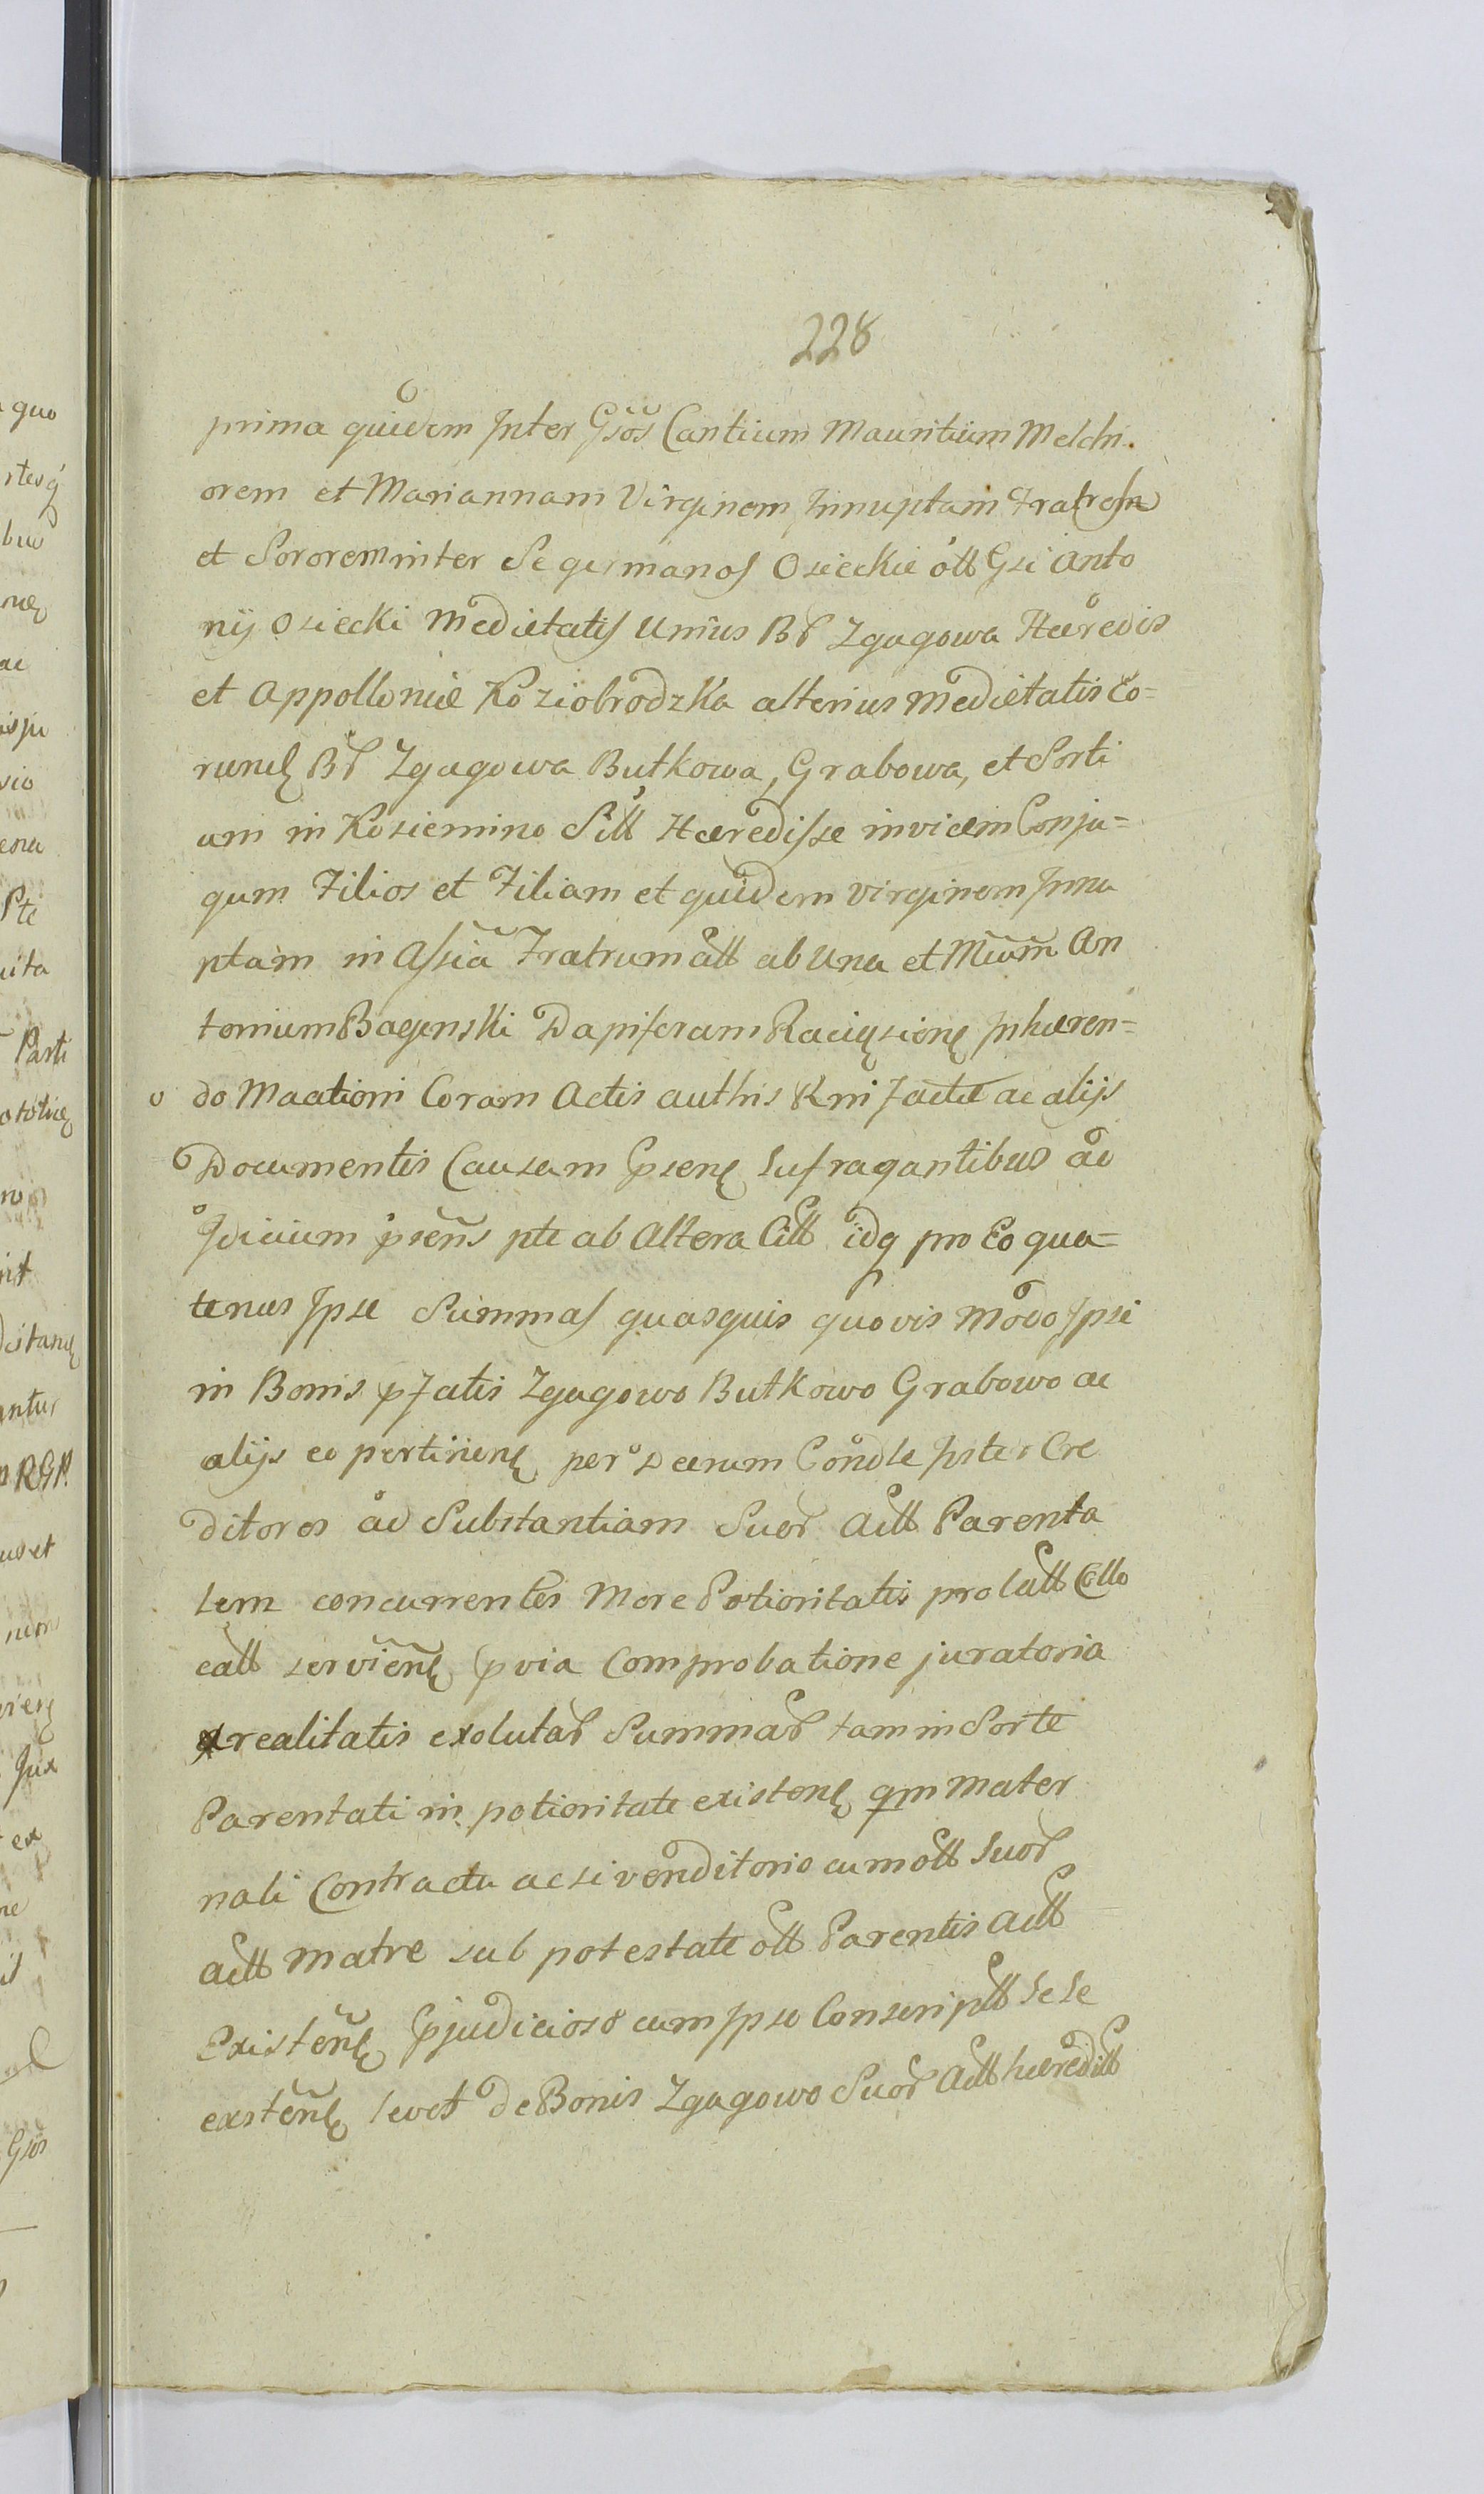 228
prima quidem Inter Gsos Cantium Mauritium Melchi-
orem et Mariannam Virginem Innuptam Fratres
et Sororem inter Se germanos Osieckie ott Gsi Anto
nij Osiecki Medietatis Unius Bł Zgagowa Hæredis
et Appolloniæ Koziobrodzka alterius Medietatis Eo=
rund Bł Zgagowa Butkowa, Grabowa, et Sorti
um in Kosiemino Sitt Hæredissæ invicem Conju=
gum Filios et Filiam et quidem virginem Innu
ptam in Assia Fratrum att ab Una et Mcum An
tonium Bagenski Dapiferum Raciązien Inhæren=
do Maationi Coram Actis authis Rni factæ ac alijs
Documentis Causam psen Sufragantibus ad
Idicium psens pte ab Altera Citt idq pro Eo qua=
tenus Ipse Summas quasquis quovis Modo Ipsi
in Bonis pfatis Zgagowo Butkowo Grabowo ac
alijs eo pertinen per Decrum Condle Inter Cre
ditores ad Substantiam Suor Actt Parenta
lem concurrentes More Potioritatis prolatt Collo
catt servien pvia Comprobatione juratoria
realitatis exolutar Summar tam in Sorte
Parentali in potioritate existen qm Mater
nali Contractu ac si venditorio cum ott Suor
actt Matre sub potestate ott Parentis Actt
Existen pjudicioso cum Ipso Conscriptt sese
extén levet de Bonis Zgagowo Suor Actt hæreditt